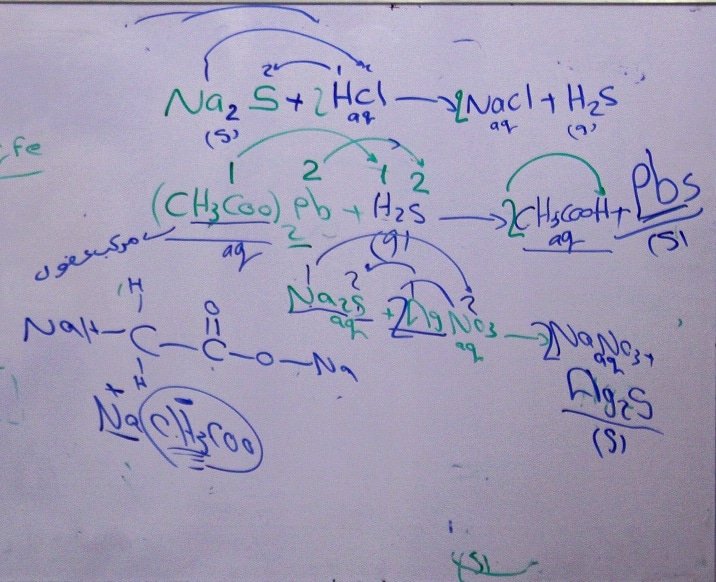 Na₂S + 2HCl → 2NaCl + H₂S
(S) aq aq (g)
Fe
1 2 1 2
(CH₃COO)₂Pb + H₂S → 2CH₃COOH + PbS
aq (g) aq (S)
Na₂S + 2AgNO₃ → 2NaNO₃ + Ag₂S
aq aq aq (S)
H
C C O Na
O
H
Na⁺ CH₃COO⁻
(S)